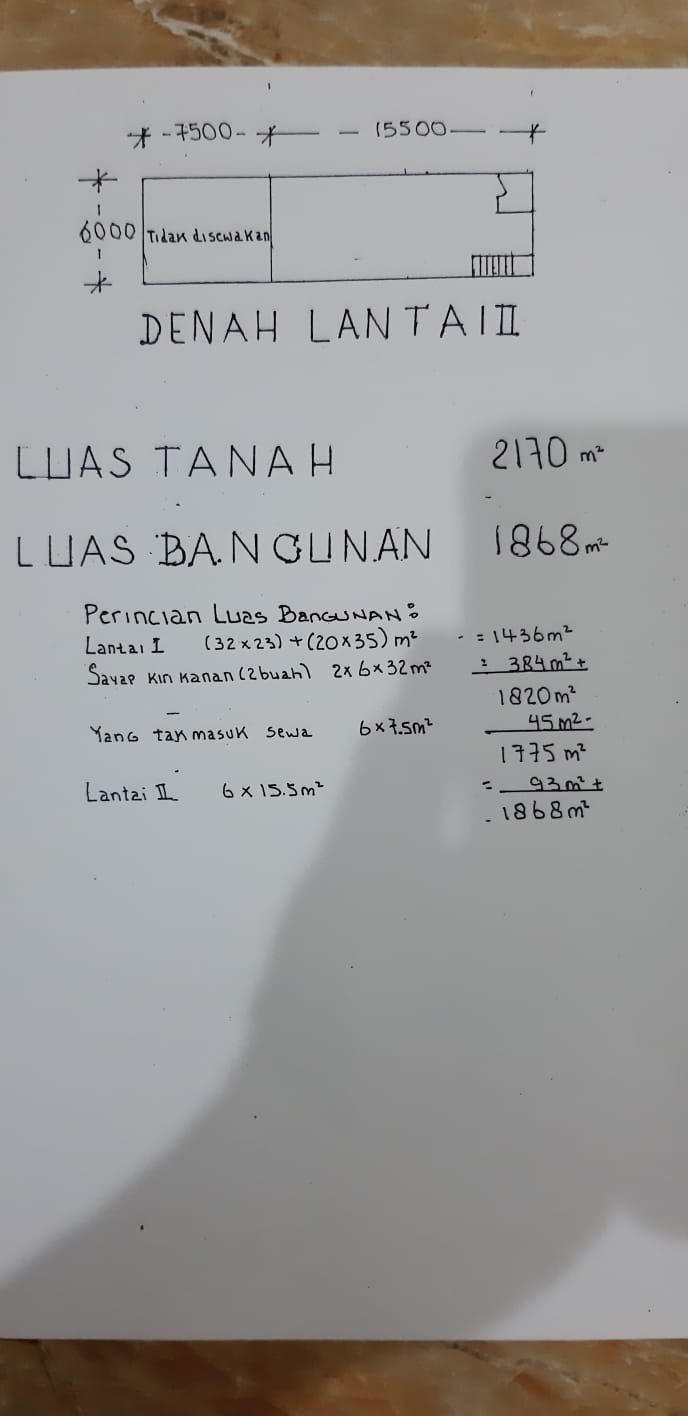 -7500- - 15500-
6000 Tidak disewakan
DENAH LANTAI II
LUAS TANAH 2170 m²
LUAS BANGUNAN 1868 m²
Perincian Luas BANGUNAN:
Lantai I (32x23)+(20x35) m² = 1436m²
Sayap kiri kanan (2buah) 2x6x32m² = 384m² +
1820m²
Yang tak masuk sewa 6x7.5m² 45m² -
1775 m²
Lantai II 6 x 15.5m² = 93m² +
1868m²